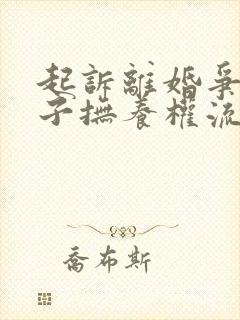 起訴離婚爭
子撫養權流
喬布斯